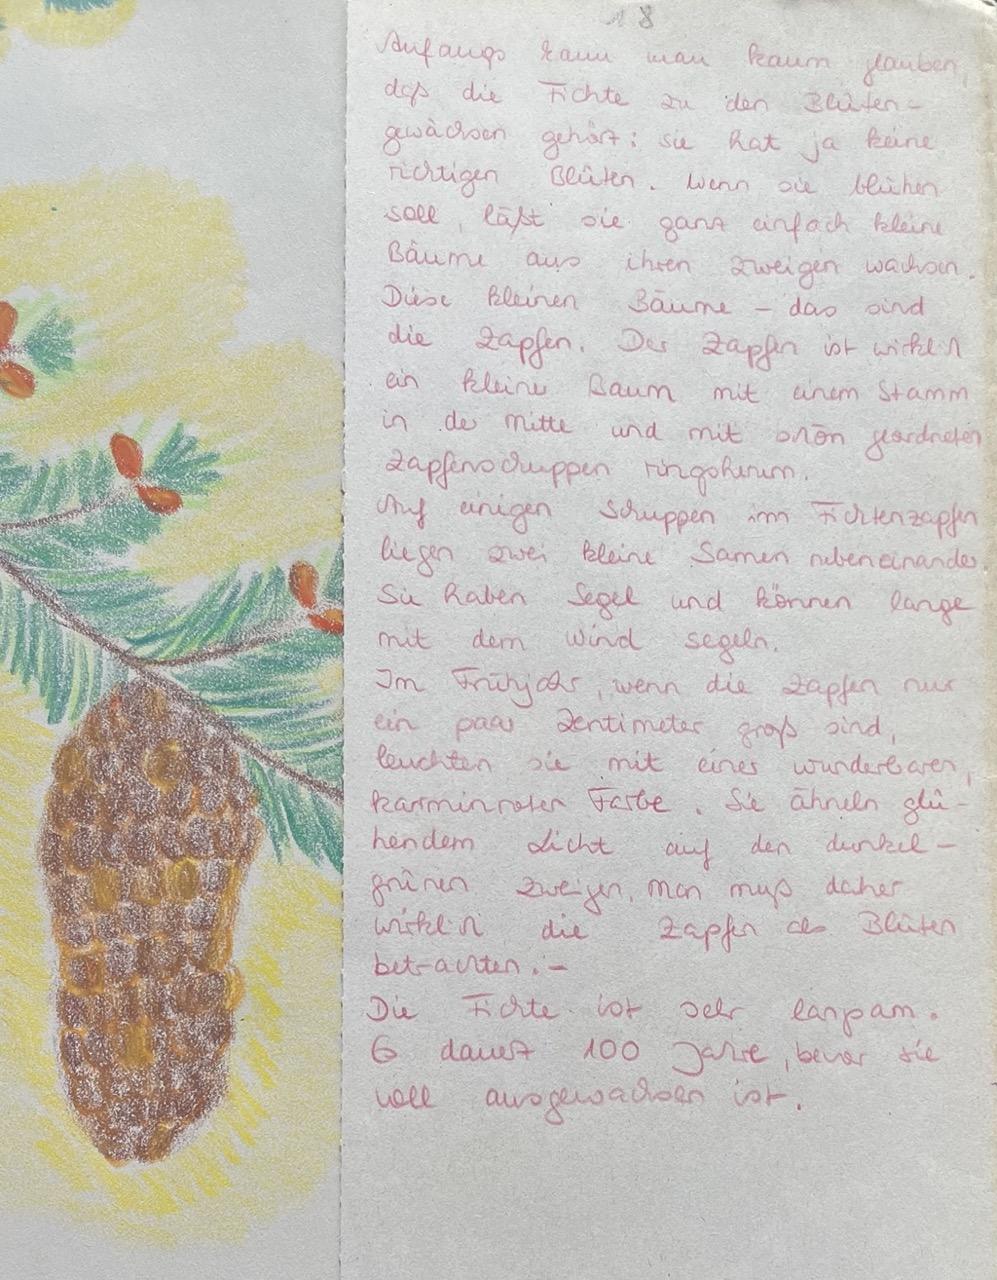 18
Anfangs kann man kaum glauben,
daß die Fichte zu den Blüten-
gewächsen gehört: sie hat ja keine
richtigen Blüten. Wenn sie blühen
soll, läßt sie ganz einfach kleine
Bäume aus ihren Zweigen wachsen.
Diese kleinen Bäume – das sind
die Zapfen. Der Zapfen ist wirklich
ein kleiner Baum mit einem Stamm
in der Mitte und mit schön geordneten
Zapfenschuppen ringsherum.
Auf einigen Schuppen im Fichtenzapfen
liegen zwei kleine Samen nebeneinander
Sie haben Segel und können lange
mit dem Wind segeln.
Im Frühjahr, wenn die Zapfen nur
ein paar Zentimeter groß sind,
leuchten sie mit einer wunderbaren,
karminroten Farbe. Sie ähneln glü-
hendem Licht auf den dunkel-
grünen Zweigen, man muß daher
wirklich die Zapfen als Blüten
betrachten. –
Die Fichte ist sehr langsam.
Es dauert 100 Jahre, bevor sie
voll ausgewachsen ist.